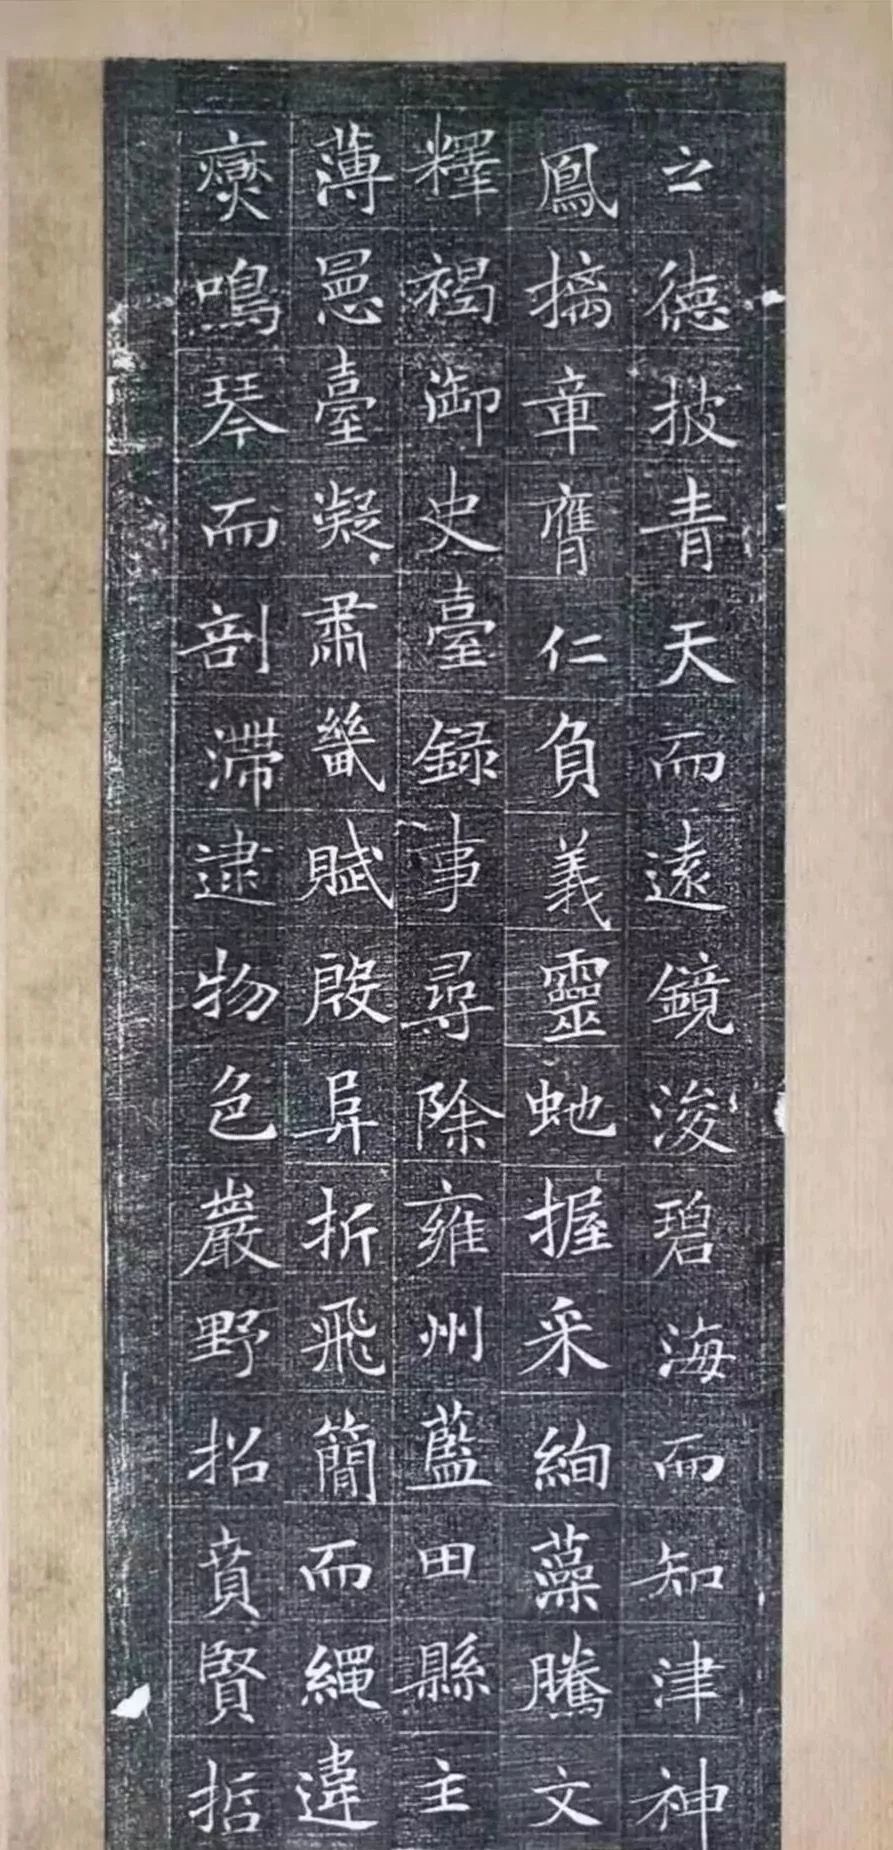 之德披青天而遠鏡浚碧海而知津神
鳳摛章膺仁負義靈虵握采絢藻騰文
釋褐御史臺録事尋除雍州藍田縣主
薄臺凝肅畿賦殷异折飛簡而繩違
鳴琴而剖滯逮物色巖野招賁賢哲